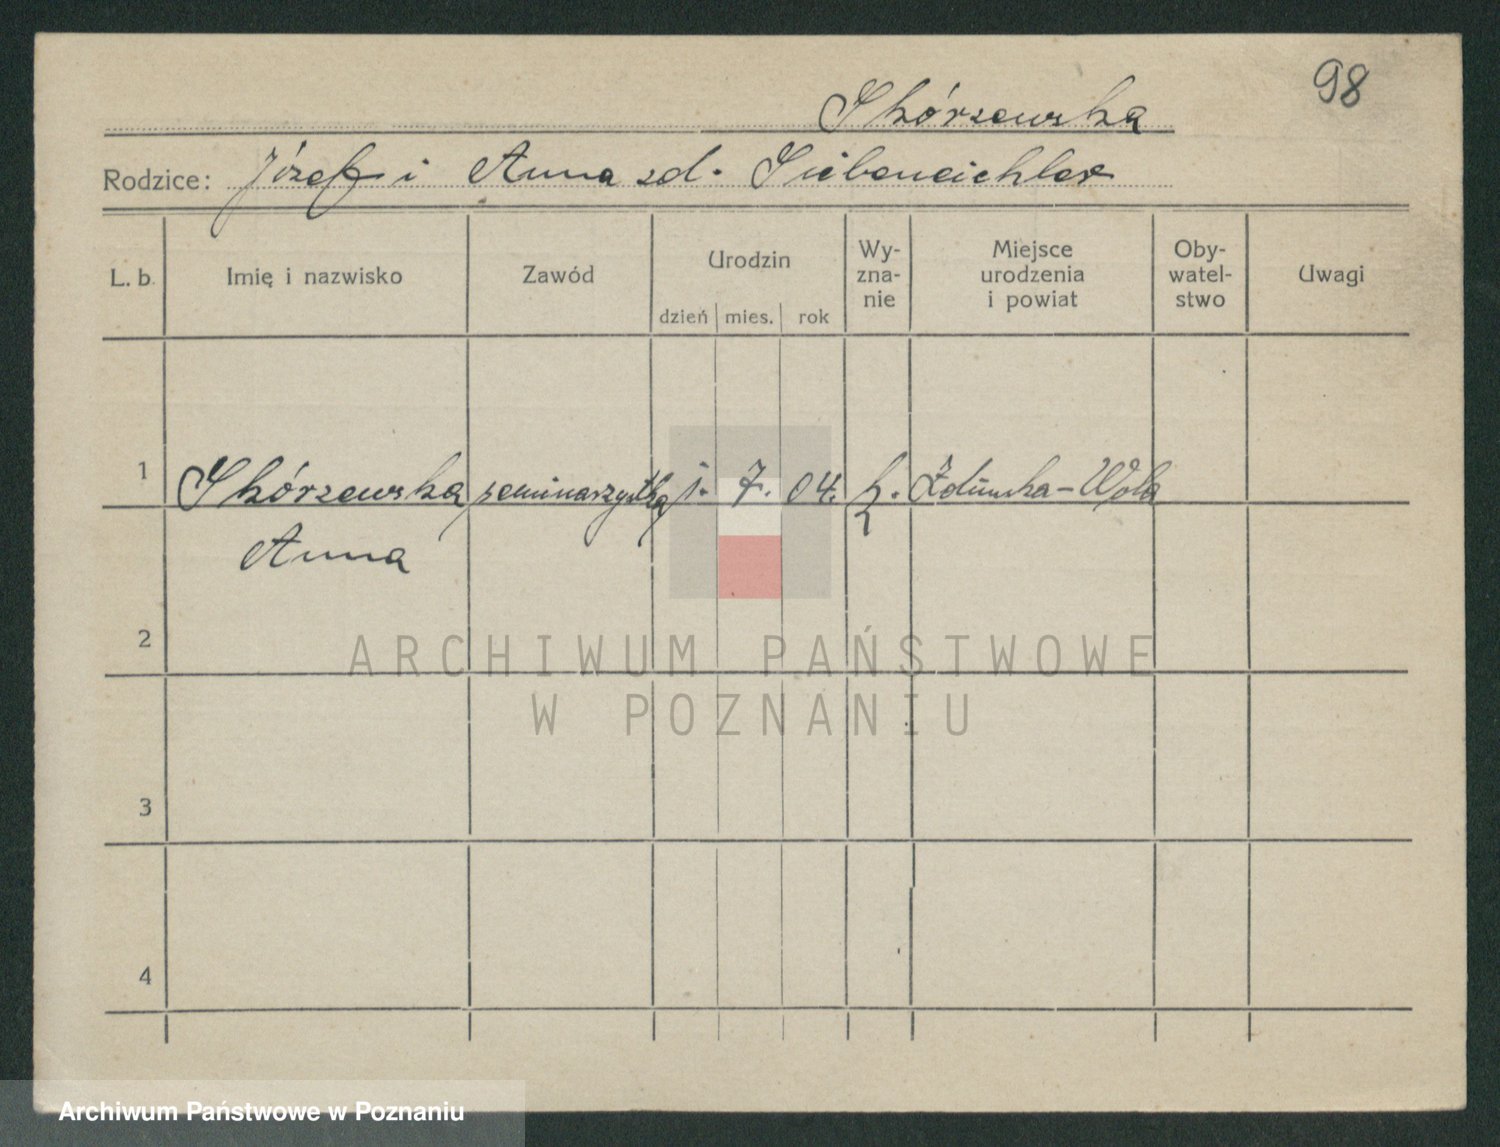 98
Skórzewska
Rodzice: Józef i Anna zd. Siebeneichler
L. b. Imię i nazwisko Zawód Urodzin dzień mies. rok Wy-zna-nie Miejsce urodzenia i powiat Oby-watel-stwo Uwagi
1 Skórzewska seminarzystka 1. 7. 04. k. Zduńska-Wola
Anna
2
3
4
ARCHIWUM PAŃSTWOWE
W POZNANIU
Archiwum Państwowe w Poznaniu